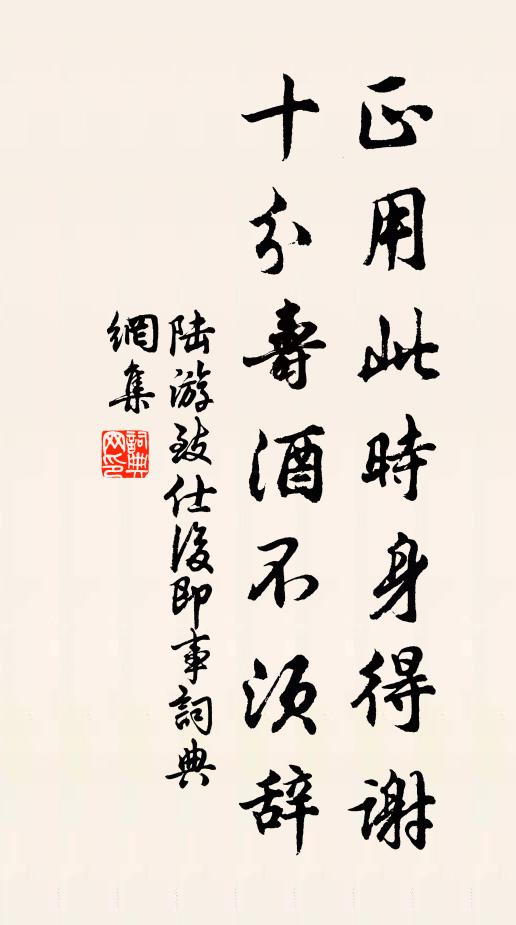 正用此時身得謝
十分壽酒不須辞
陆游致仕後即事詞典
網集
詞典网印